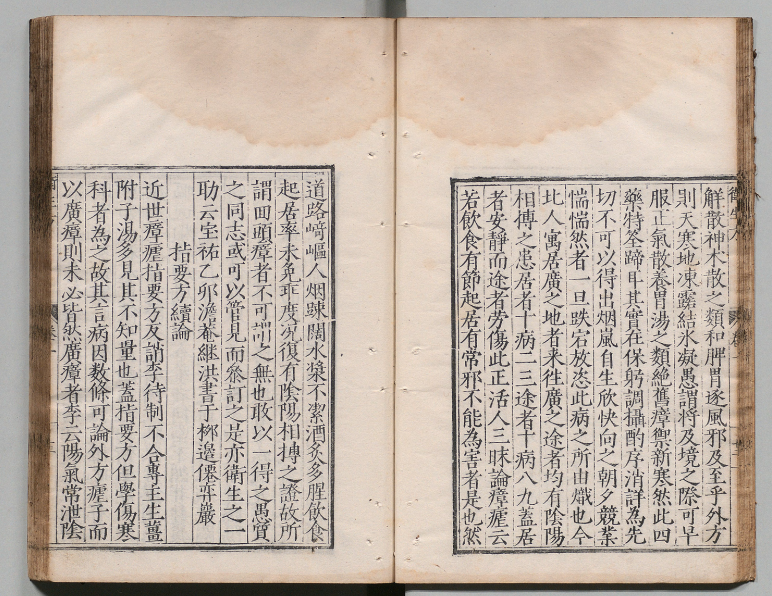 解散神术散之類和脾胃逐風邪及至乎外方
則天寒地凍露結氷凝愚謂將及境之際可早
服正氣散養胃湯之類絶舊瘴禦新寒然此四
藥特筌蹄耳其實在保躬調攝酌序消詳為先
切不可以得出烟嵐自生欣快向之朝夕競業
惴惴然者一旦跌宕放恣此病之所由熾也今
北人寓居廣之地者来徃廣之途者均有陰陽
相搏之患居者十病二三途者十病八九蓋居
者安靜而途者劳傷此正活人三昧論瘴瘧云
若飲食有節起居有常邪不能為害者是也然
道路﨑嶇人烟踈闊水漿不潔酒炙多腥飲食
起居率未免乖度况復有陰陽相搏之證故所
謂回頭瘴者不可謂之無也敢以一得之愚質
之同志或可以管見而叅訂之是亦衛生之一
助云宝祐乙卯澹菴継洪書于栁邉僊弈巖
指要方續論
近世瘴瘧指要方及誚李待制不合專主生薑
附子湯多見其不知量也蓋指要方但學傷寒
科者為之故其言病因数條可論外方瘧子而
以廣瘴則未必皆然廣瘴者李云陽氣常泄陰